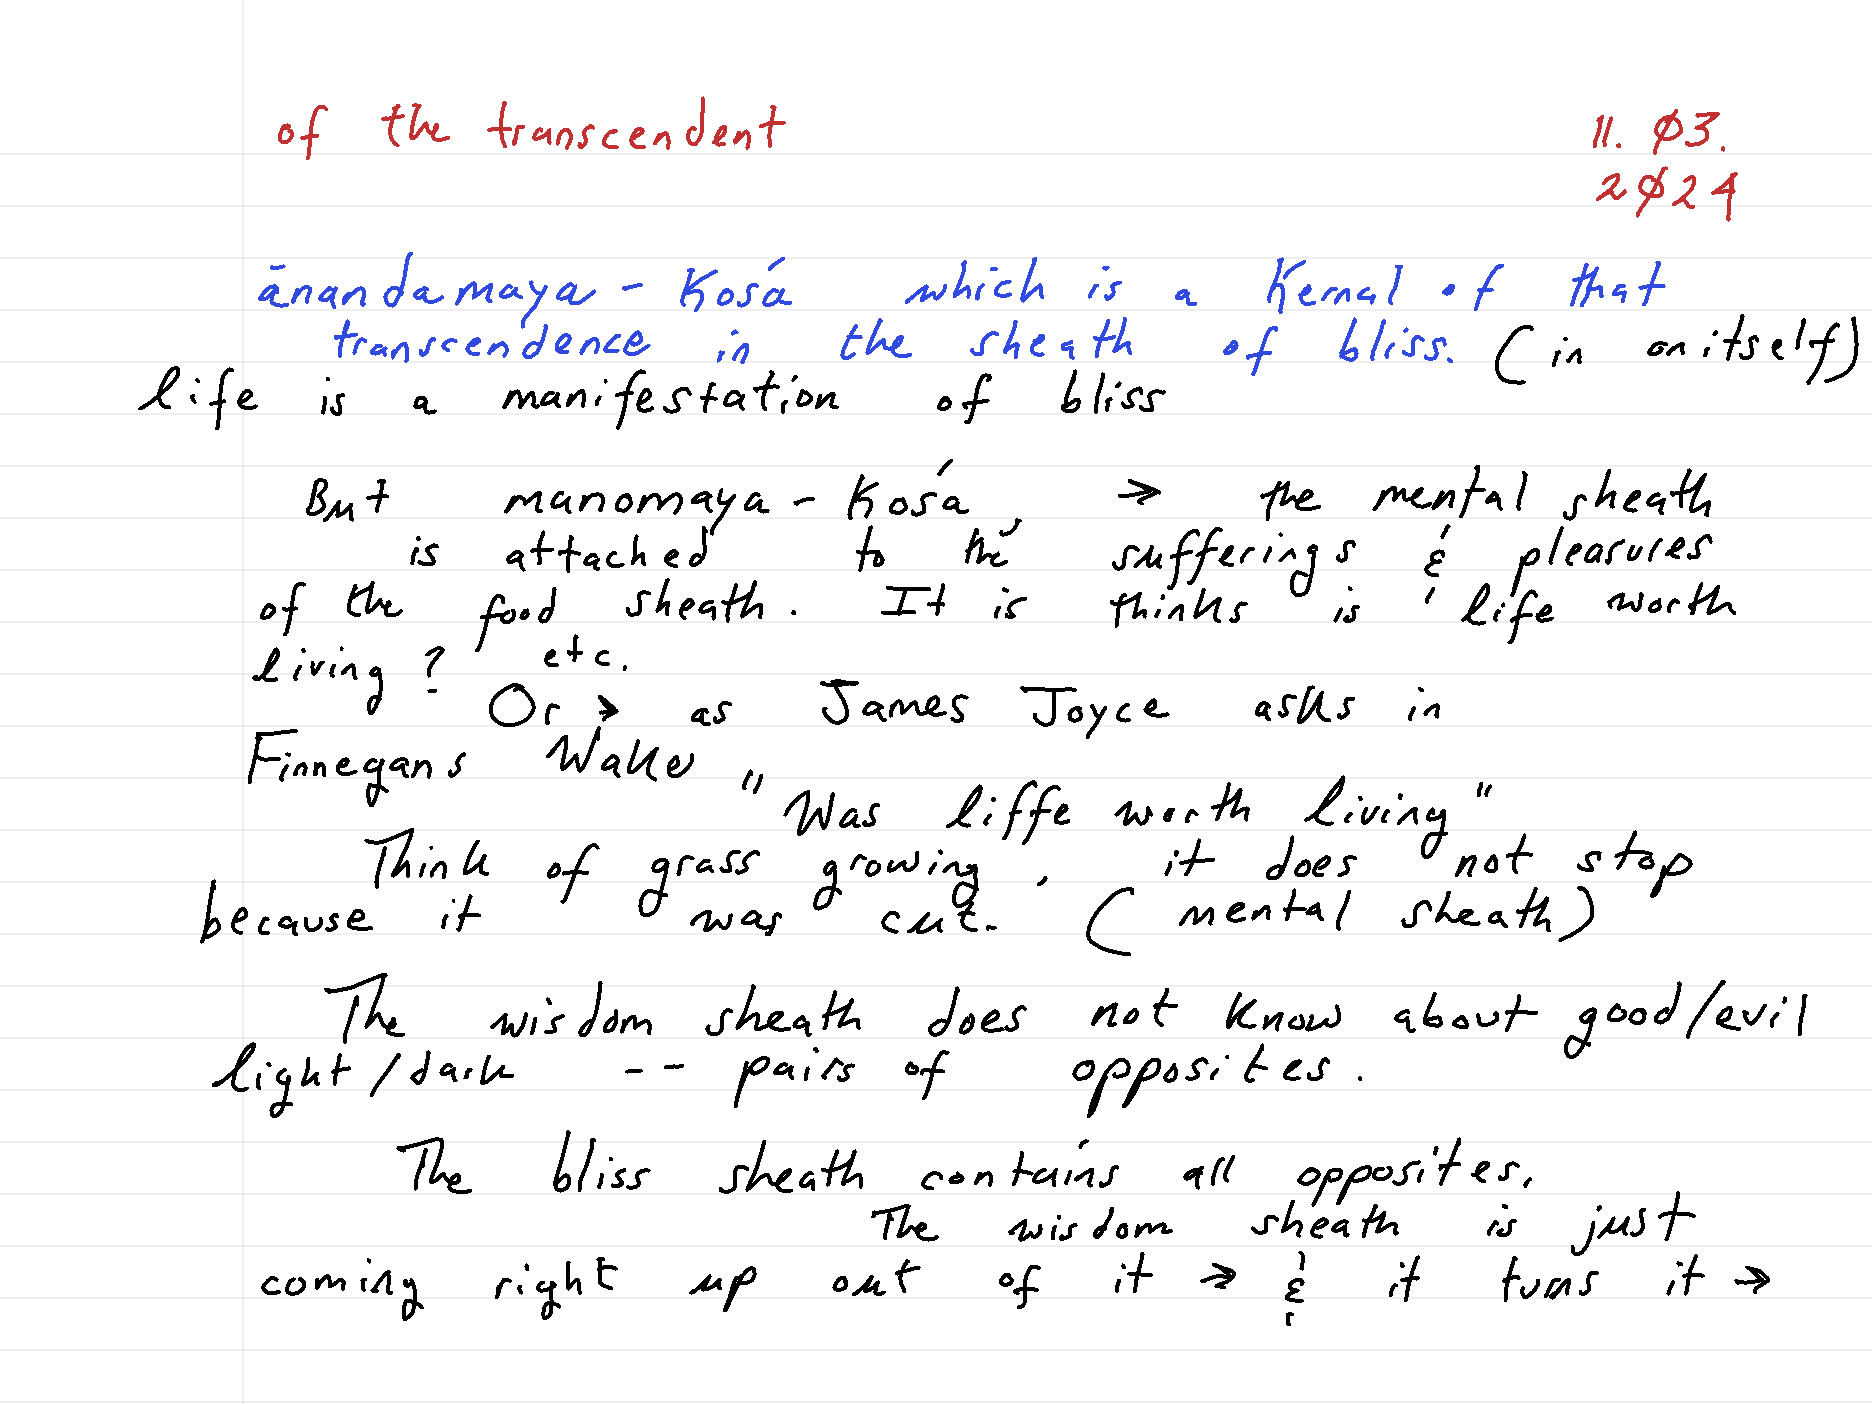 of the transcendent 11. Ø3.
2Ø24
ānandamaya - Kośa which is a Kernal of that
transcendence in the sheath of bliss. (in on itself)
life is a manifestation of bliss
But manomaya - Kośa, → the mental sheath
is attached to the sufferings & pleasures
of the food sheath. It is thinks is ' life worth
living? etc.
Or → as James Joyce asks in
Finnegans Wake
"Was liffe worth living"
Think of grass growing, it does not stop
because it was cut. (mental sheath)
The wisdom sheath does not know about good/evil
light/dark -- pairs of opposites.
The bliss sheath contains all opposites.
The wisdom sheath is just
coming right up out of it → & it turns it →